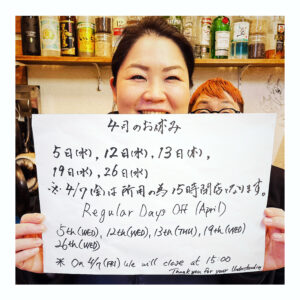 4月のお休み
5日(水), 12日(水), 13日(木),
19日(水), 26日(水)
※ 4/7(金)は所用の為15時閉店になります。
Regular Days Off (April)
5th(WED), 12th(WED), 13th(THU), 19th(WED)
26th(WED)
※ On 4/7(FRI) We will close at 15:00
Thank you for your Understanding